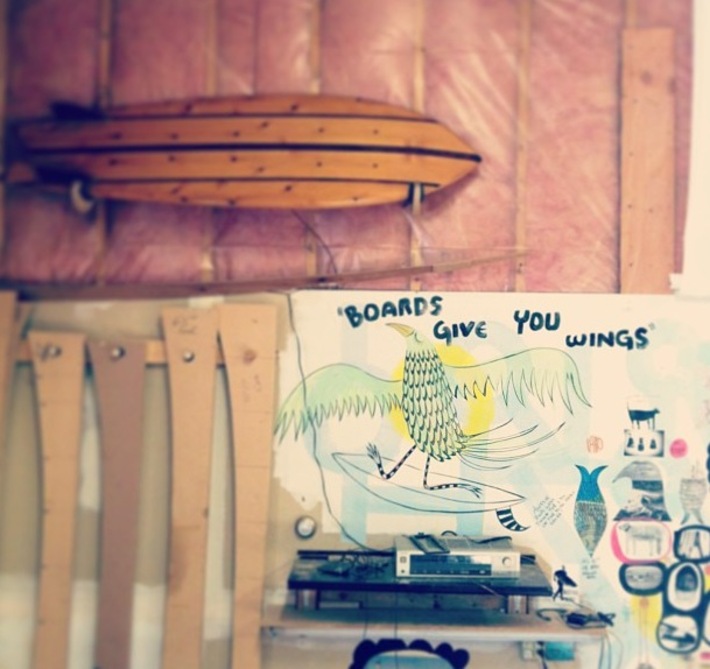 "BOARDS GIVE YOU WINGS"